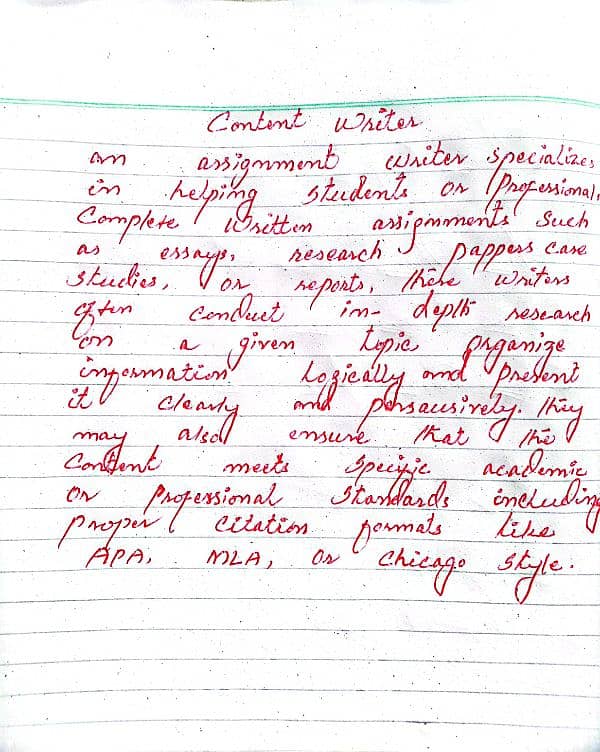 Content Writer
an assignment writer specializes
in helping students or Professional,
Complete Written assignments Such
as essays, research pappers Case
studies, or reports, these writers
often conduct in-depth research
on a given topic organize
information Logically and Present
it clearly and persausively. They
may also ensure that the
Content meets Specific academic
or Professional Standards including
proper citation formats like
APA, MLA, or Chicago Style.